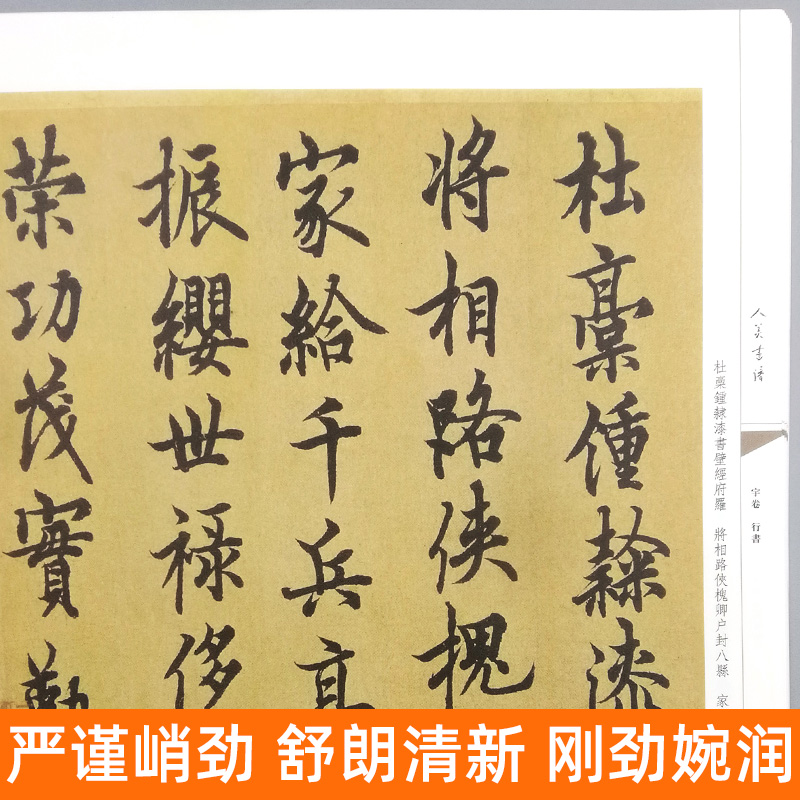 杜稾鍾隸漆
将相路侠槐
家給千兵高
振纓世禄侈
荣功茂實勒
人美书谱
宇卷 行書
杜稾鍾隸漆書壁經府羅 將相路俠槐卿户封八縣 家
严谨峭劲 舒朗清新 刚劲婉润